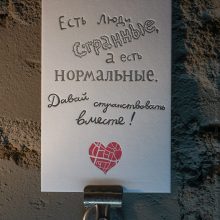 Есть люди
странные,
а есть
нормальные.
Давай странствовать
вместе!